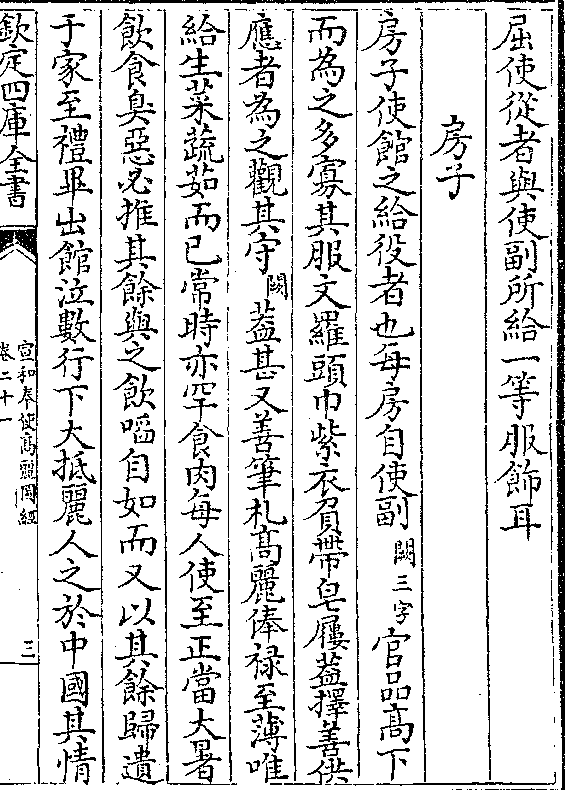 屈使從者與使副所給一等服飾耳
房子
房子使館之給役者也每房自使副闕三字官品髙下
而為之多寡其服文羅頭巾紫衣角帶皂屨葢擇善供
應者為之觀其守闕葢甚又善筆札髙麗俸禄至薄唯
給生菜蔬茹而已常時亦罕食肉每人使至正當大暑
飲食臭惡必推其餘與之飲㗖自如而又以其餘歸遺
于家至禮畢出館泣數行下大抵麗人之於中國其情
欽定四庫全書
宣和奉使髙麗圖經
卷二十一
三